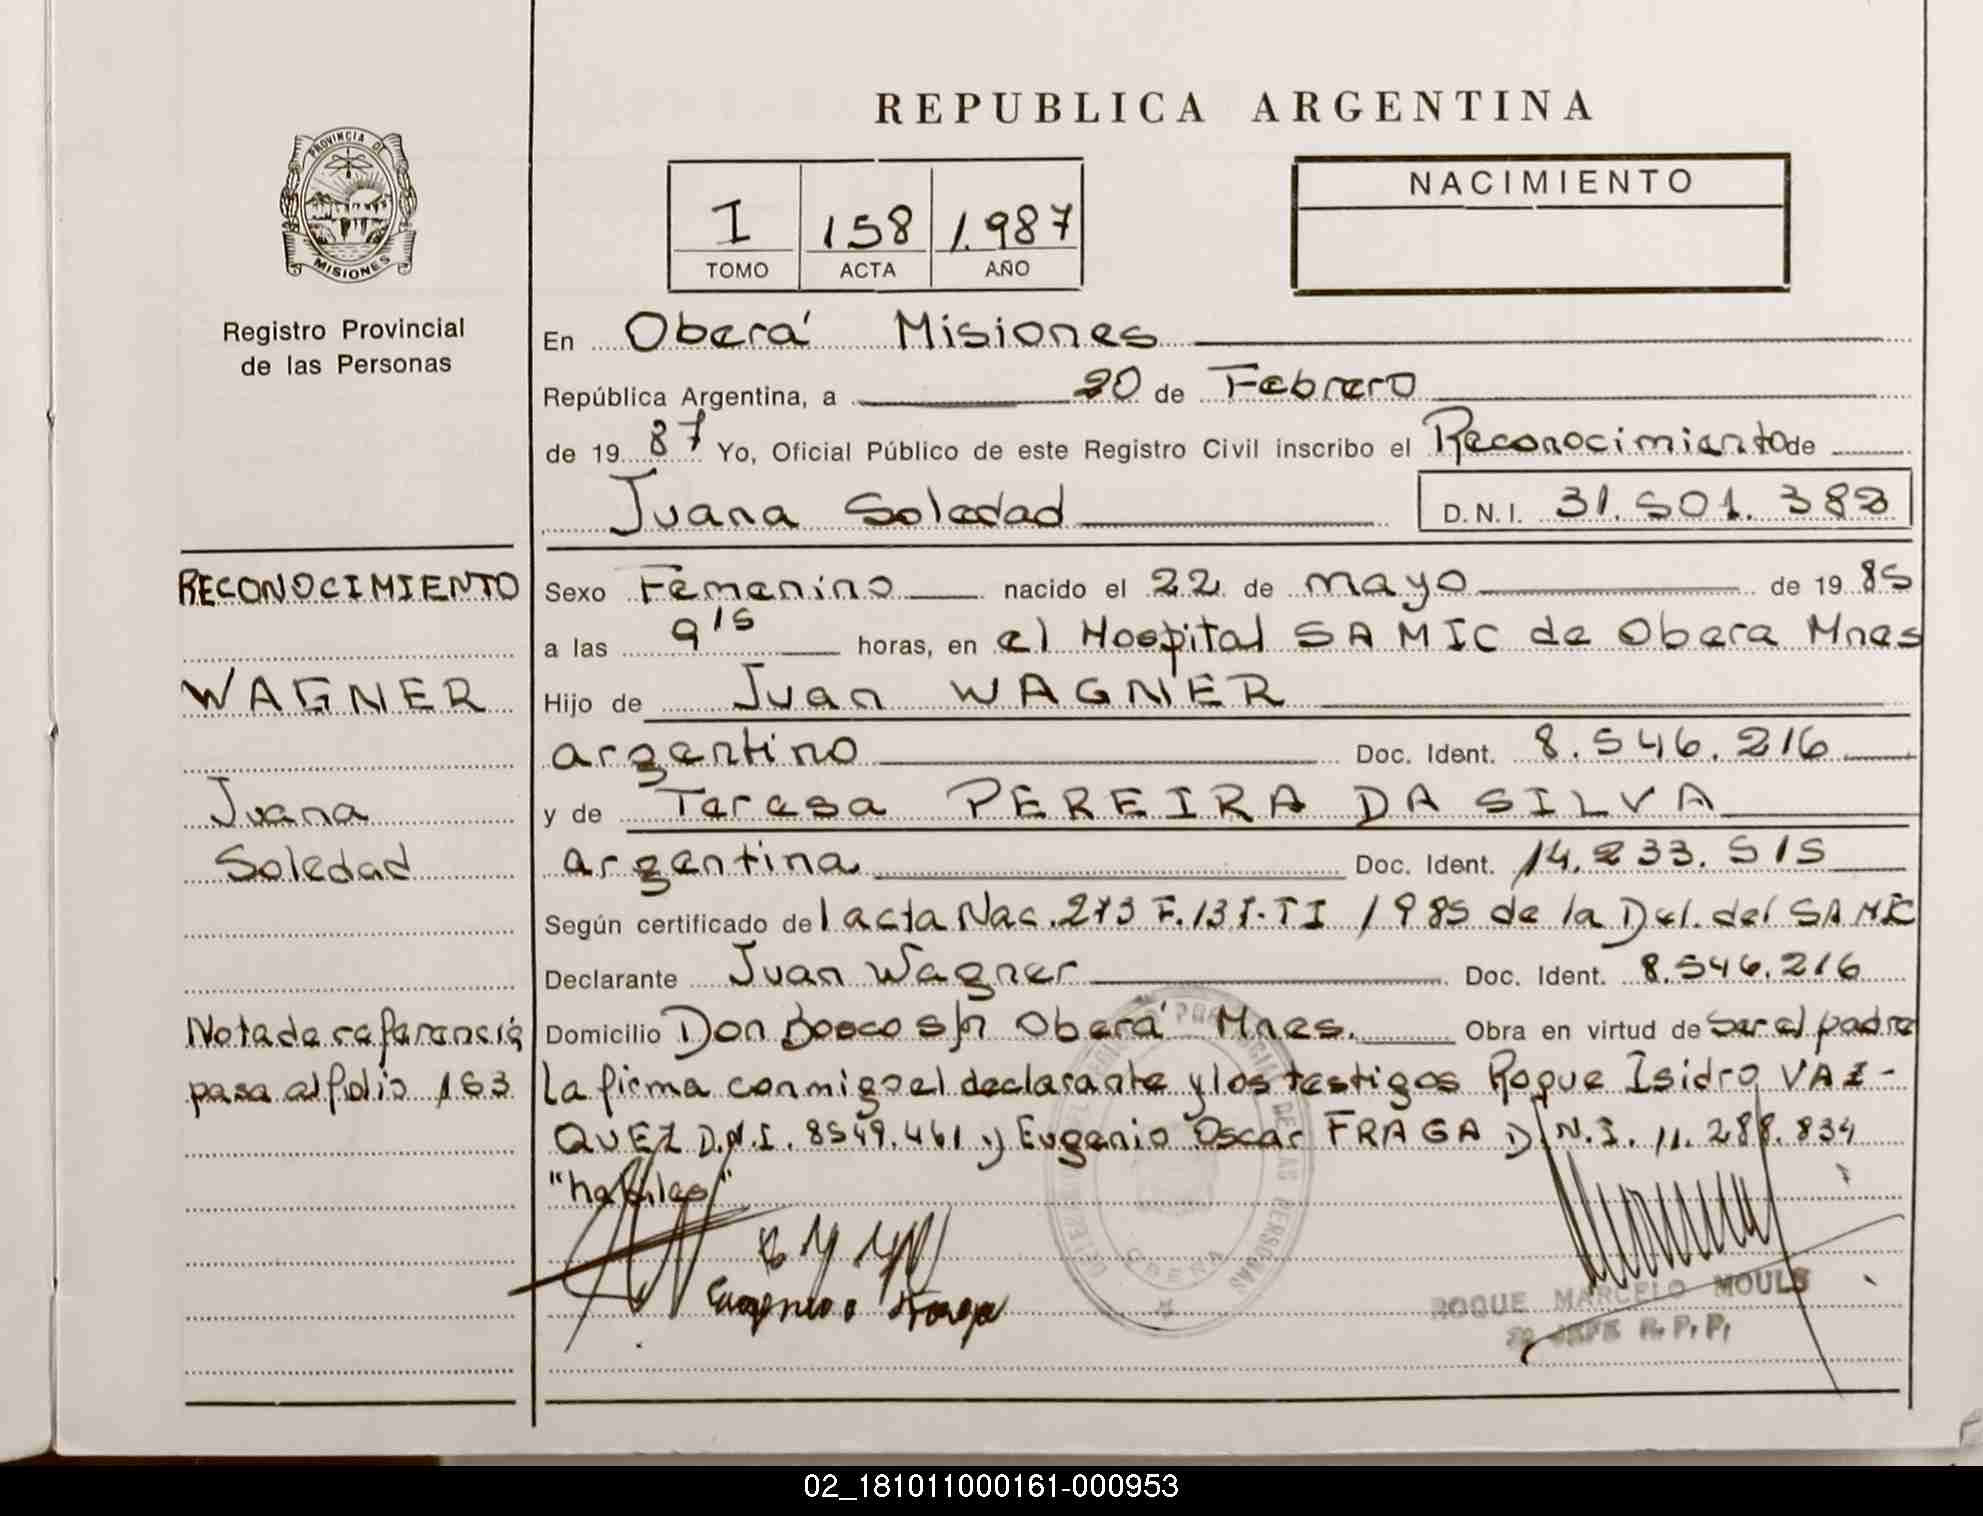 REPUBLICA ARGENTINA
PROVINCIA DE
MISIONES
Registro Provincial
de las Personas
I 158 1.987
TOMO ACTA AÑO
NACIMIENTO
En Oberá Misiones
República Argentina, a 20 de Febrero
de 19 87 Yo, Oficial Público de este Registro Civil inscribo el Reconocimiento de
Juana Soledad D.N.I. 31.501.383
RECONOCIMIENTO
WAGNER
Juana
Soledad
Nota de referencia
pasa al folio 163
Sexo Femenino nacido el 22 de mayo de 19 85
a las 9'15 horas, en el Hospital SAMIC de Obera Mnes
Hijo de Juan WAGNER
argentino Doc. Ident. 8.546.216
y de Teresa PEREIRA DA SILVA
argentina Doc. Ident. 14.233.515
Según certificado del acta Nac. 273 F. 137-TI / 985 de la Del. del SAMIC
Declarante Juan Wagner Doc. Ident. 8.546.216
Domicilio Don Bosco s/n Oberá Mnes. Obra en virtud de ser el padre
La firma conmigo el declarante y los testigos Roque Isidro VAZ-
QUEZ D.N.I. 8549.461 y Eugenio Oscar FRAGA D.N.I. 11.288.834
"habiles"
Eugenio Fraga
ROQUE MARCELO MOULS
JEFE R.P.P.
02_181011000161-000953